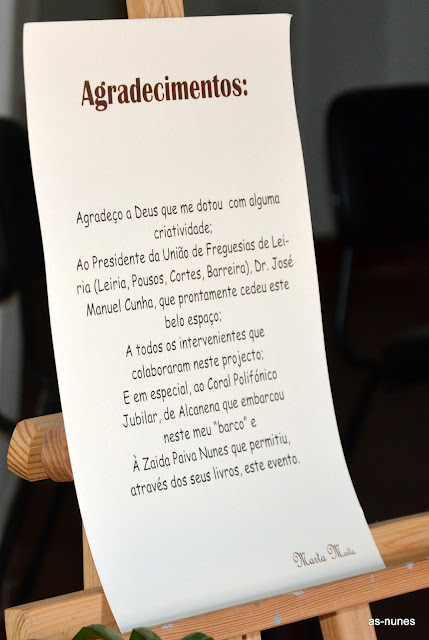 Agradecimentos:
Agradeço a Deus que me dotou com alguma
criatividade;
Ao Presidente da União de Freguesias de Lei-
ria (Leiria, Pousos, Cortes, Barreira), Dr. José
Manuel Cunha, que prontamente cedeu este
belo espaço;
A todos os intervenientes que
colaboraram neste projecto;
E em especial, ao Coral Polifónico
Jubilar, de Alcanena que embarcou
neste meu "barco" e
À Zaida Paiva Nunes que permitiu,
através dos seus livros, este evento.
Marta
as-nunes